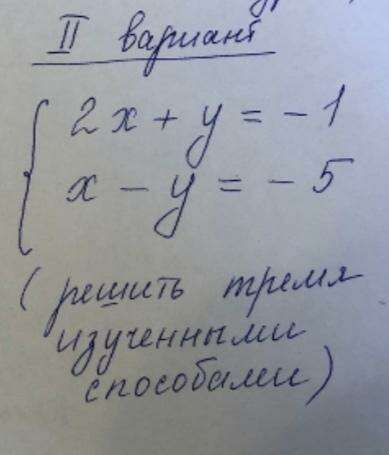 II вариант
2x + y = -1
x - y = -5
(решить тремя
изученными
способами)